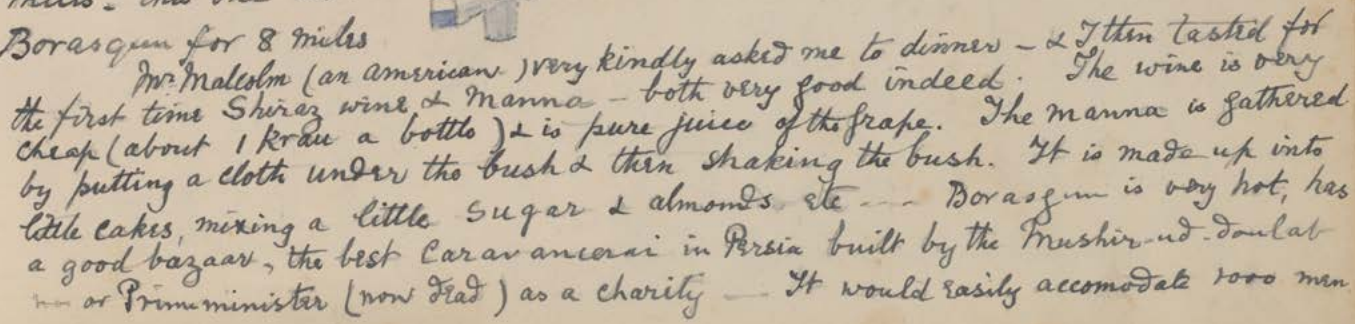 Borasgun for 8 miles
Mr. Malcolm (an american) very kindly asked me to dinner - & I then tasted for
the first time Shiraz wine & Manna - both very good indeed. The wine is very
cheap (about 1 kran a bottle) & is pure juice of the grape. The manna is gathered
by putting a cloth under the bush & then shaking the bush. It is made up into
little cakes, mixing a little sugar & almonds etc --- Borasgun is very hot, has
a good bazaar, the best Caravancerai in Persia built by the Mushir-ud-doulat
or Prime minister (now dead) as a charity — It would easily accomodate 1000 men